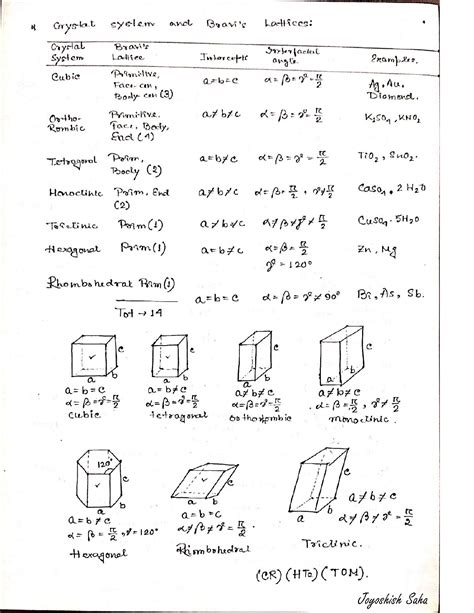 * Crystal system and Bravi's Lattices:
Crystal System | Bravi's Lattice | Intercepts | Interfacial angle | Examples.
Cubic | Primitive, Face cen, Body cen (3) | a = b = c | α = β = γ = π/2 | Ag, Au, Diamond.
Ortho-Rombic | Primitive, Face, Body, End (4) | a ≠ b ≠ c | α = β = γ = π/2 | K₂SO₄, KNO₃
Tetragonal | Prim, Body (2) | a = b ≠ c | α = β = γ = π/2 | TiO₂, SnO₂.
Monoclinic | Prim, End (2) | a ≠ b ≠ c | α = β = π/2, γ ≠ π/2 | CaSO₄, 2H₂O
Triclinic | Prim (1) | a ≠ b ≠ c | α ≠ β ≠ γ ≠ π/2 | CuSO₄. 5H₂O
Hexagonal | Prim (1) | a = b ≠ c | α = β = π/2 γ = 120° | Zn, Mg
Rhombohedral Prim (1) | a = b = c | α = β = γ ≠ 90° | Bi, As, Sb.
Tot → 14
a b c
a = b = c
α = β = γ = π/2
Cubic
a b c
a = b ≠ c
α = β = γ = π/2
tetragonal
a b c
a ≠ b ≠ c
α = β = γ = π/2
Orthorombic
a b c
a ≠ b ≠ c
α = β = π/2, γ ≠ π/2
monoclinic.
120° a b c
a = b ≠ c
α = β = π/2, γ = 120°
Hexagonal
a b c
a = b = c
α ≠ β = γ = π/2
Rhombohedral
a b c
a ≠ b ≠ c
α ≠ β ≠ γ = π/2
Triclinic.
(CR) (HTO) (TOM).
Joyoshish Saha